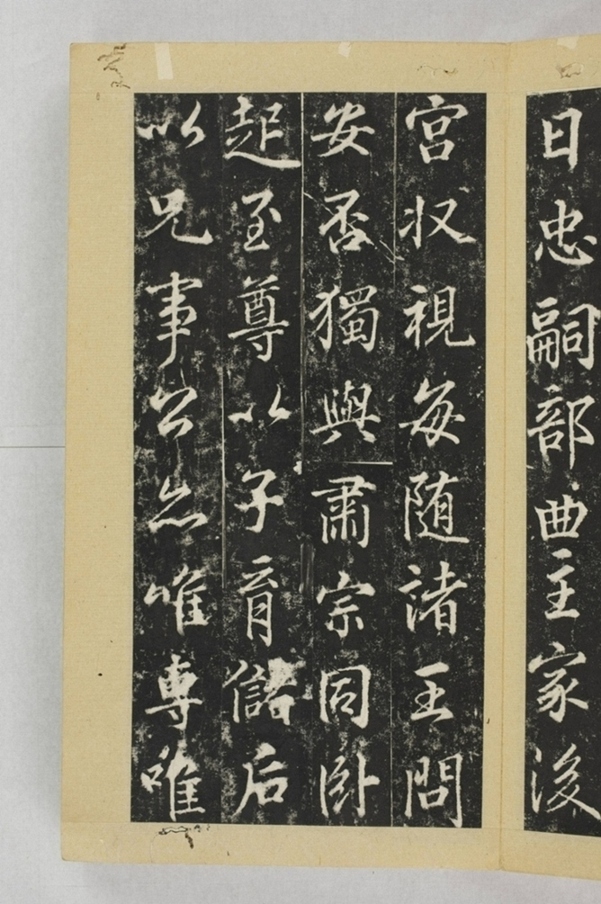 日忠嗣部曲主家後
宫收視每随諸王問
安否獨與肅宗同卧
起至尊以子育儲后
以兄事公亦唯專唯